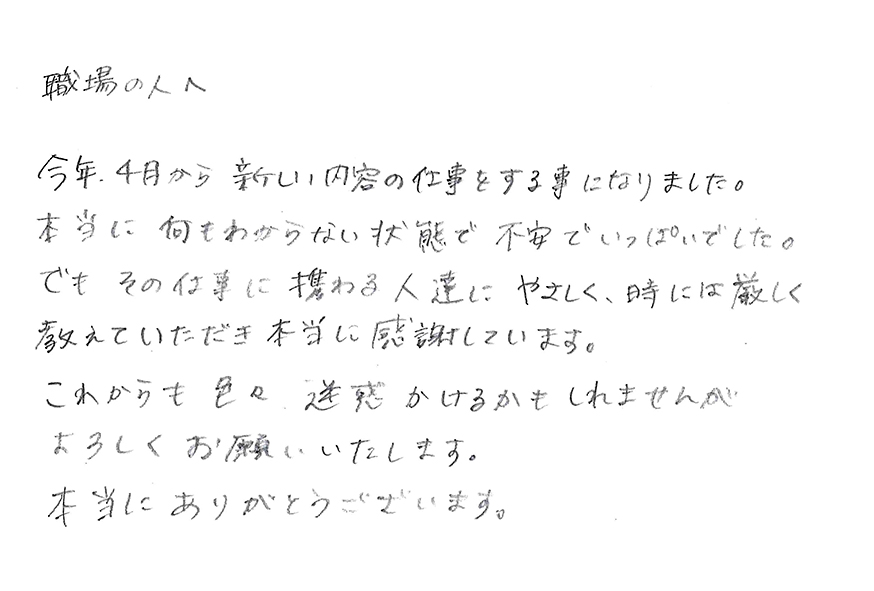 職場の人へ
今年、4月から 新しい内容の仕事をする事になりました。
本当に 何もわからない状態で 不安でいっぱいでした。
でも その仕事に 携わる人達に やさしく、時には厳しく
教えていただき本当に感謝しています。
これからも 色々 迷惑 かけるかもしれませんが
よろしく お願い いたします。
本当に ありがとうございます。